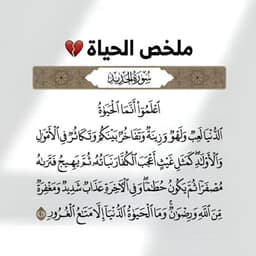 ملخص الحياة 💔
سُورَةُ الحَدِيدِ
ٱعْلَمُوٓا۟ أَنَّمَا ٱلْحَيَوٰةُ
ٱلدُّنْيَا لَعِبٌ وَلَهْوٌ وَزِينَةٌ وَتَفَاخُرٌۢ بَيْنَكُمْ وَتَكَاثُرٌ فِى ٱلْأَمْوَٰلِ
وَٱلْأَوْلَٰدِ ۖ كَمَثَلِ غَيْثٍ أَعْجَبَ ٱلْكُفَّارَ نَبَاتُهُۥ ثُمَّ يَهِيجُ فَتَرَىٰهُ
مُصْفَرًّا ثُمَّ يَكُونُ حُطَٰمًا ۖ وَفِى ٱلْءَاخِرَةِ عَذَابٌ شَدِيدٌ وَمَغْفِرَةٌ
مِّنَ ٱللَّهِ وَرِضْوَٰنٌ ۚ وَمَا ٱلْحَيَوٰةُ ٱلدُّنْيَآ إِلَّا مَتَٰعُ ٱلْغُرُورِ ٢٠